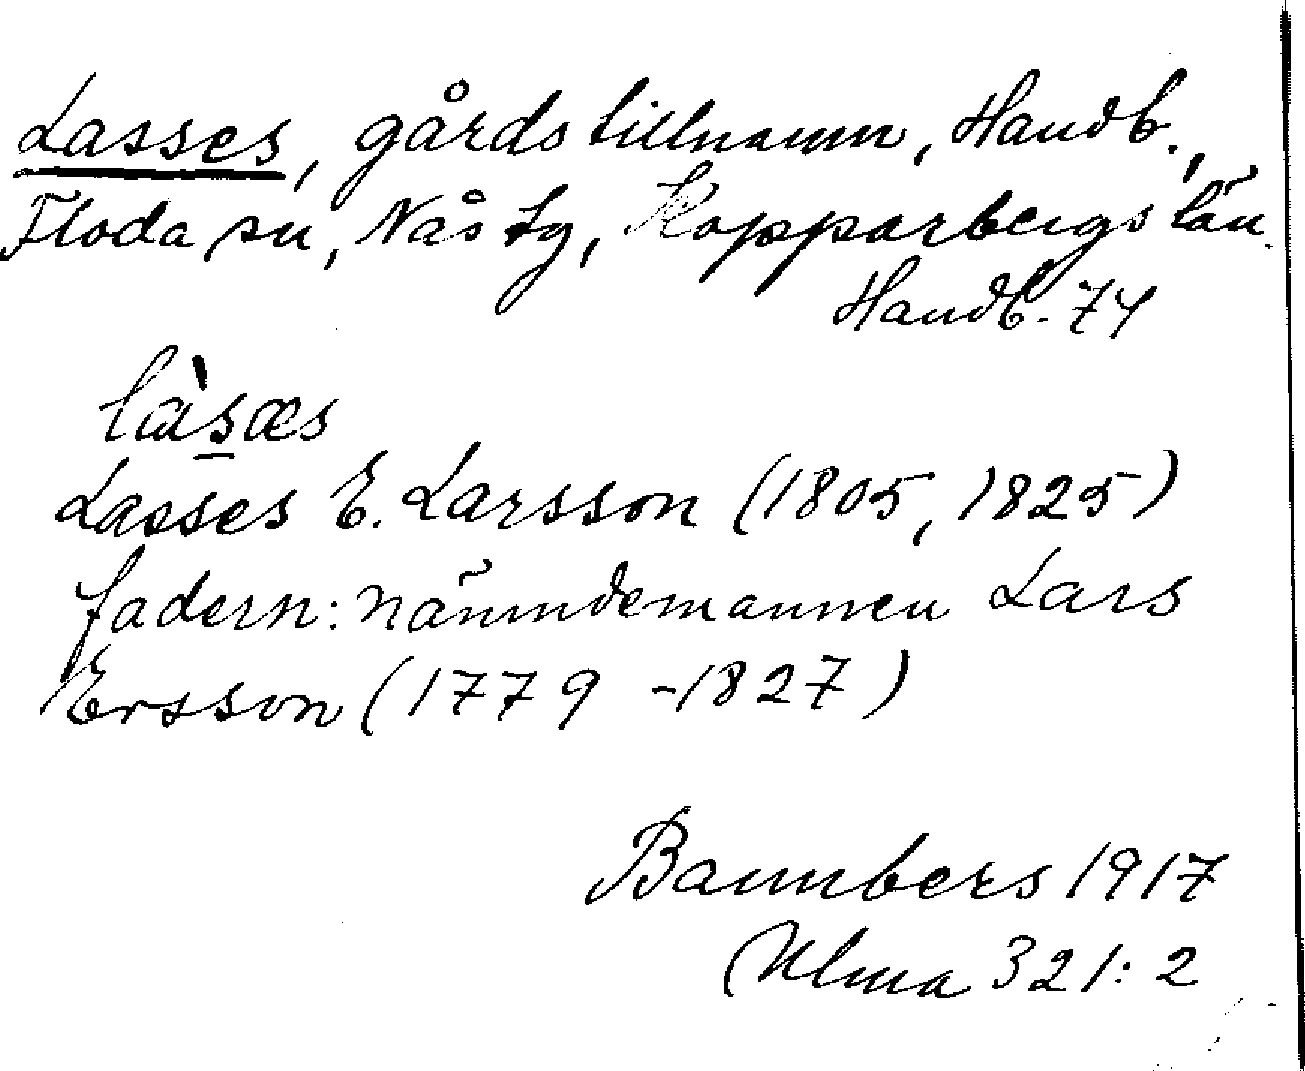 Lasses, gårdstillnamn, Handb.,
Floda sn, Nås tg, Kopparbergs län.
Handb. 74
la`s̲æs
Lasses E. Larsson (1805, 1825)
fadern: nämndemannen Lars
Ersson (1779 - 1827)
Bannbers 1917
(Ulma 321:2